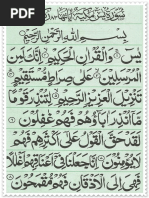 سُورَةُ يٰسٓ مَكِّيَّةٌ
بِسْمِ اللّٰهِ الرَّحْمٰنِ الرَّحِيْمِ
يٰسٓ ۝ وَالْقُرْاٰنِ الْحَكِيْمِ ۝ اِنَّكَ لَمِنَ
الْمُرْسَلِيْنَ ۝ عَلٰى صِرَاطٍ مُّسْتَقِيْمٍ ۝
تَنْزِيْلَ الْعَزِيْزِ الرَّحِيْمِ ۝ لِتُنْذِرَ قَوْمًا
مَّآ اُنْذِرَ اٰبَآؤُهُمْ فَهُمْ غٰفِلُوْنَ ۝
لَقَدْ حَقَّ الْقَوْلُ عَلٰٓى اَكْثَرِهِمْ فَهُمْ
لَا يُؤْمِنُوْنَ ۝ اِنَّا جَعَلْنَا فِيْٓ اَعْنَاقِهِمْ اَغْلٰلًا
فَهِيَ اِلَى الْاَذْقَانِ فَهُمْ مُّقْمَحُوْنَ ۝